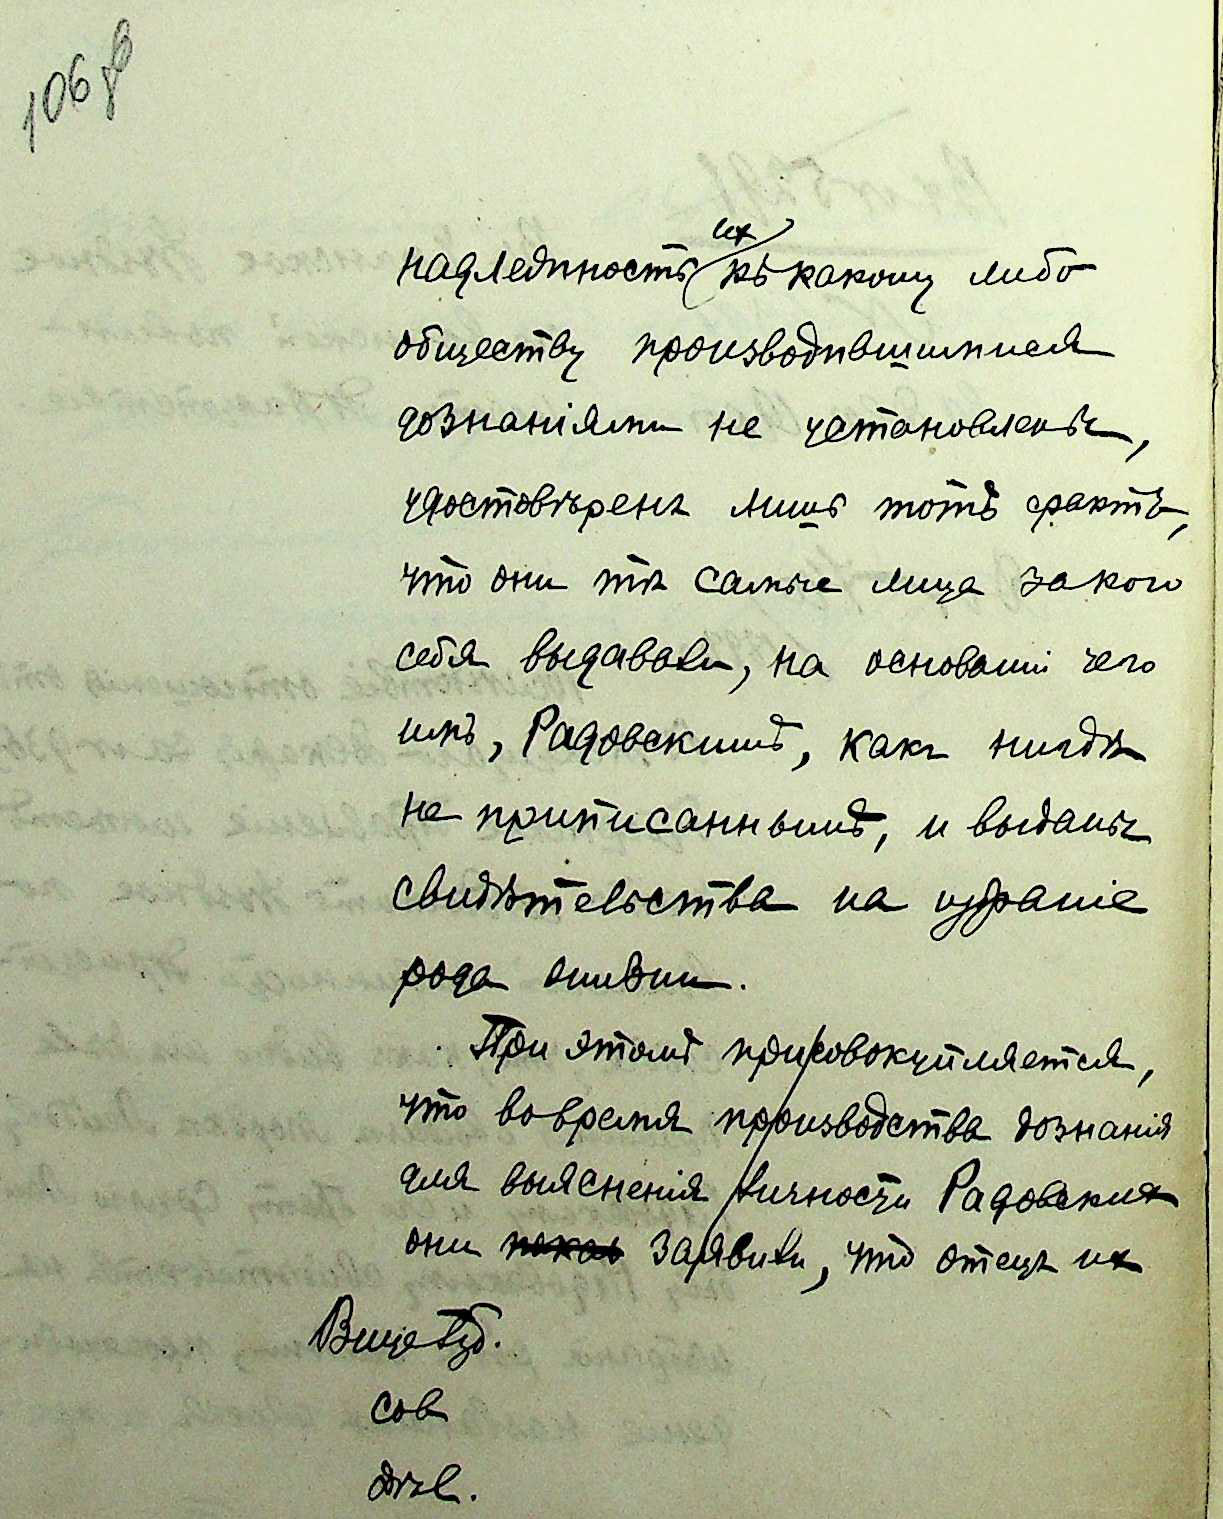 106 об
надлежность их къ какому либо
обществу производившимися
дознаніями не установлены,
удостовѣренъ лишь тотъ фактъ,
что они тѣ самые лица за кого
себя выдавали, на основаніи чего
имъ, Радовскимъ, какъ нигдѣ
не приписаннымъ, и выданы
свидѣтельства на избраніе
рода жизни.
При этомъ присовокупляется,
что во время производства дознанія
для выясненія личности Радовских
они показ заявили, что отецъ их
Вице Губ.
сов
дѣл.